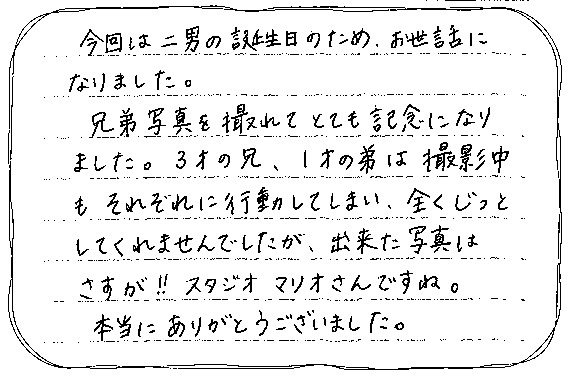 今回は二男の誕生日のため、お世話に
なりました。
兄弟写真を撮れてとても記念になり
ました。3才の兄、1才の弟は撮影中
もそれぞれに行動してしまい、全くじっと
してくれませんでしたが、出来た写真は
さすが!!スタジオマリオさんですね。
本当にありがとうございました。